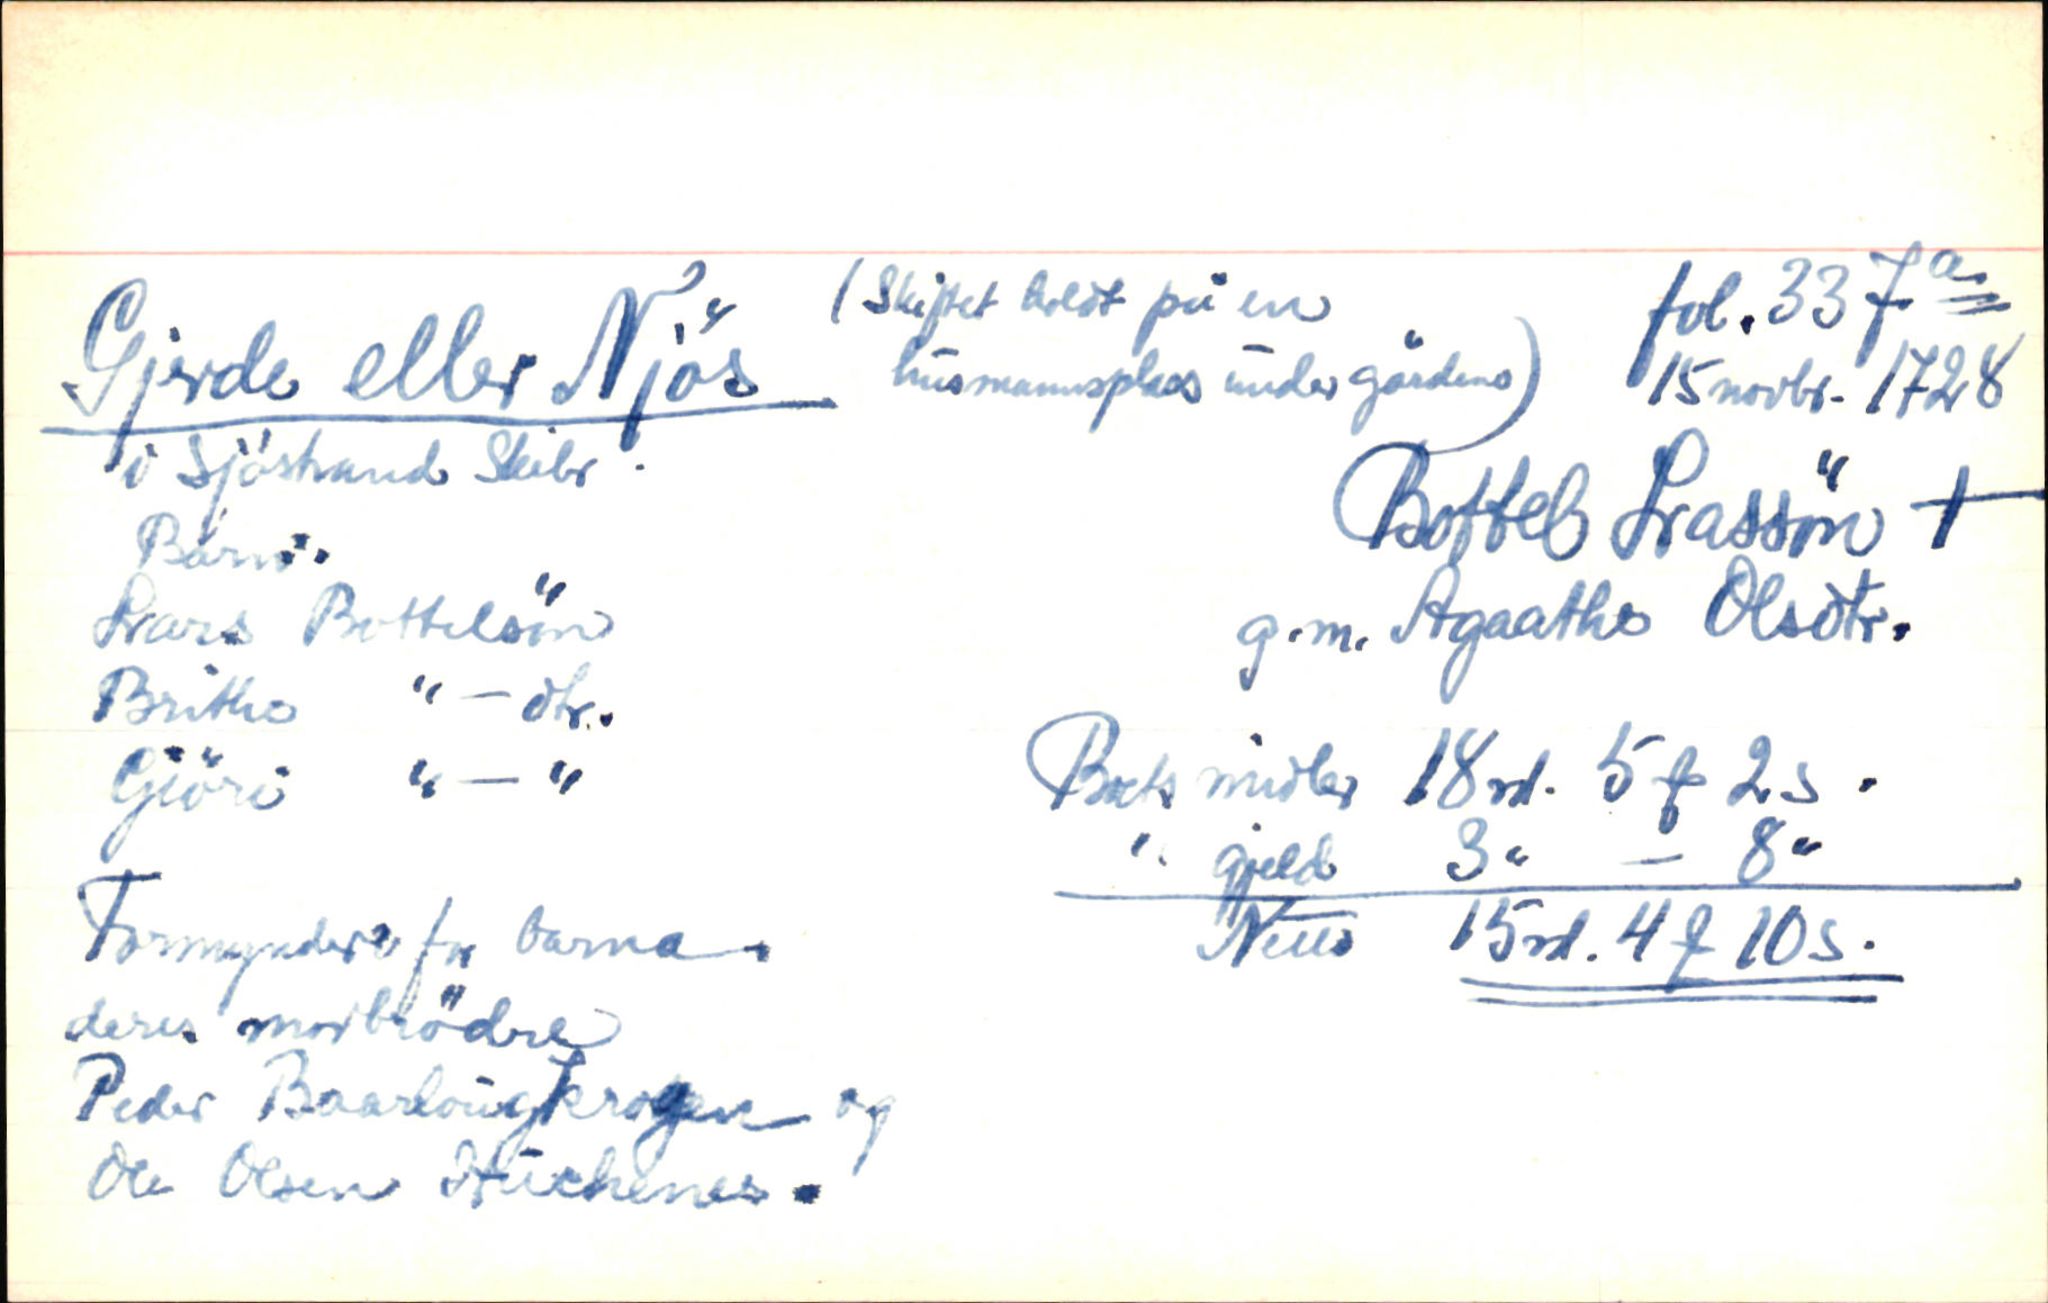 Gjerde eller Njös
(Skiftet holdt på en
husmannsplass under gårdens)
fol. 337a
15 novbr. 1728
i Sjöstrand Skibr.
Bottel Larssön †
g.m. Agaathe Olsdtr.
Barn:
Lars Bottelsön
Brithe " — dtr.
Gjöri " — "
Boets midler 18 rd. 5 f 2 s.
" gjeld 3 " — 8 "
Netto 15 rd. 4 f 10 s.
Formyndere for barna
deres morbrödre
Peder Baarlougkrogen og
Ole Olsen Huckenes.